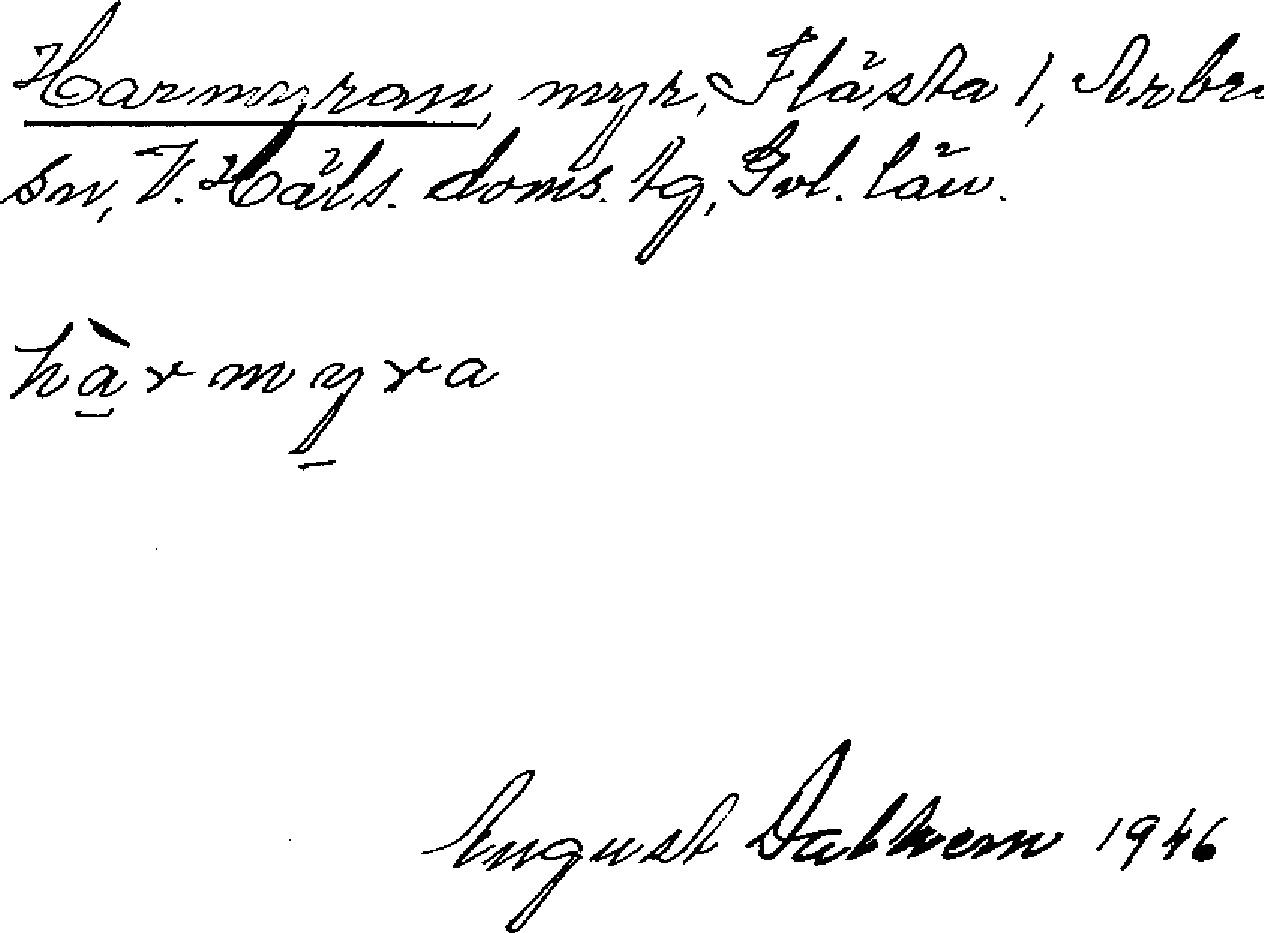 Harmyran, myr, Flästa 1, Arbrå
sn, V. Häls. doms. tg, Gvl. län.
hàrmyra
August 1946